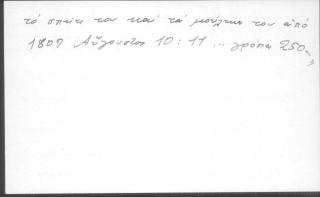 τό σπίτι του καί τά μούλκια του από
1809 Αὔγουστος 10:11... γρόσια 250